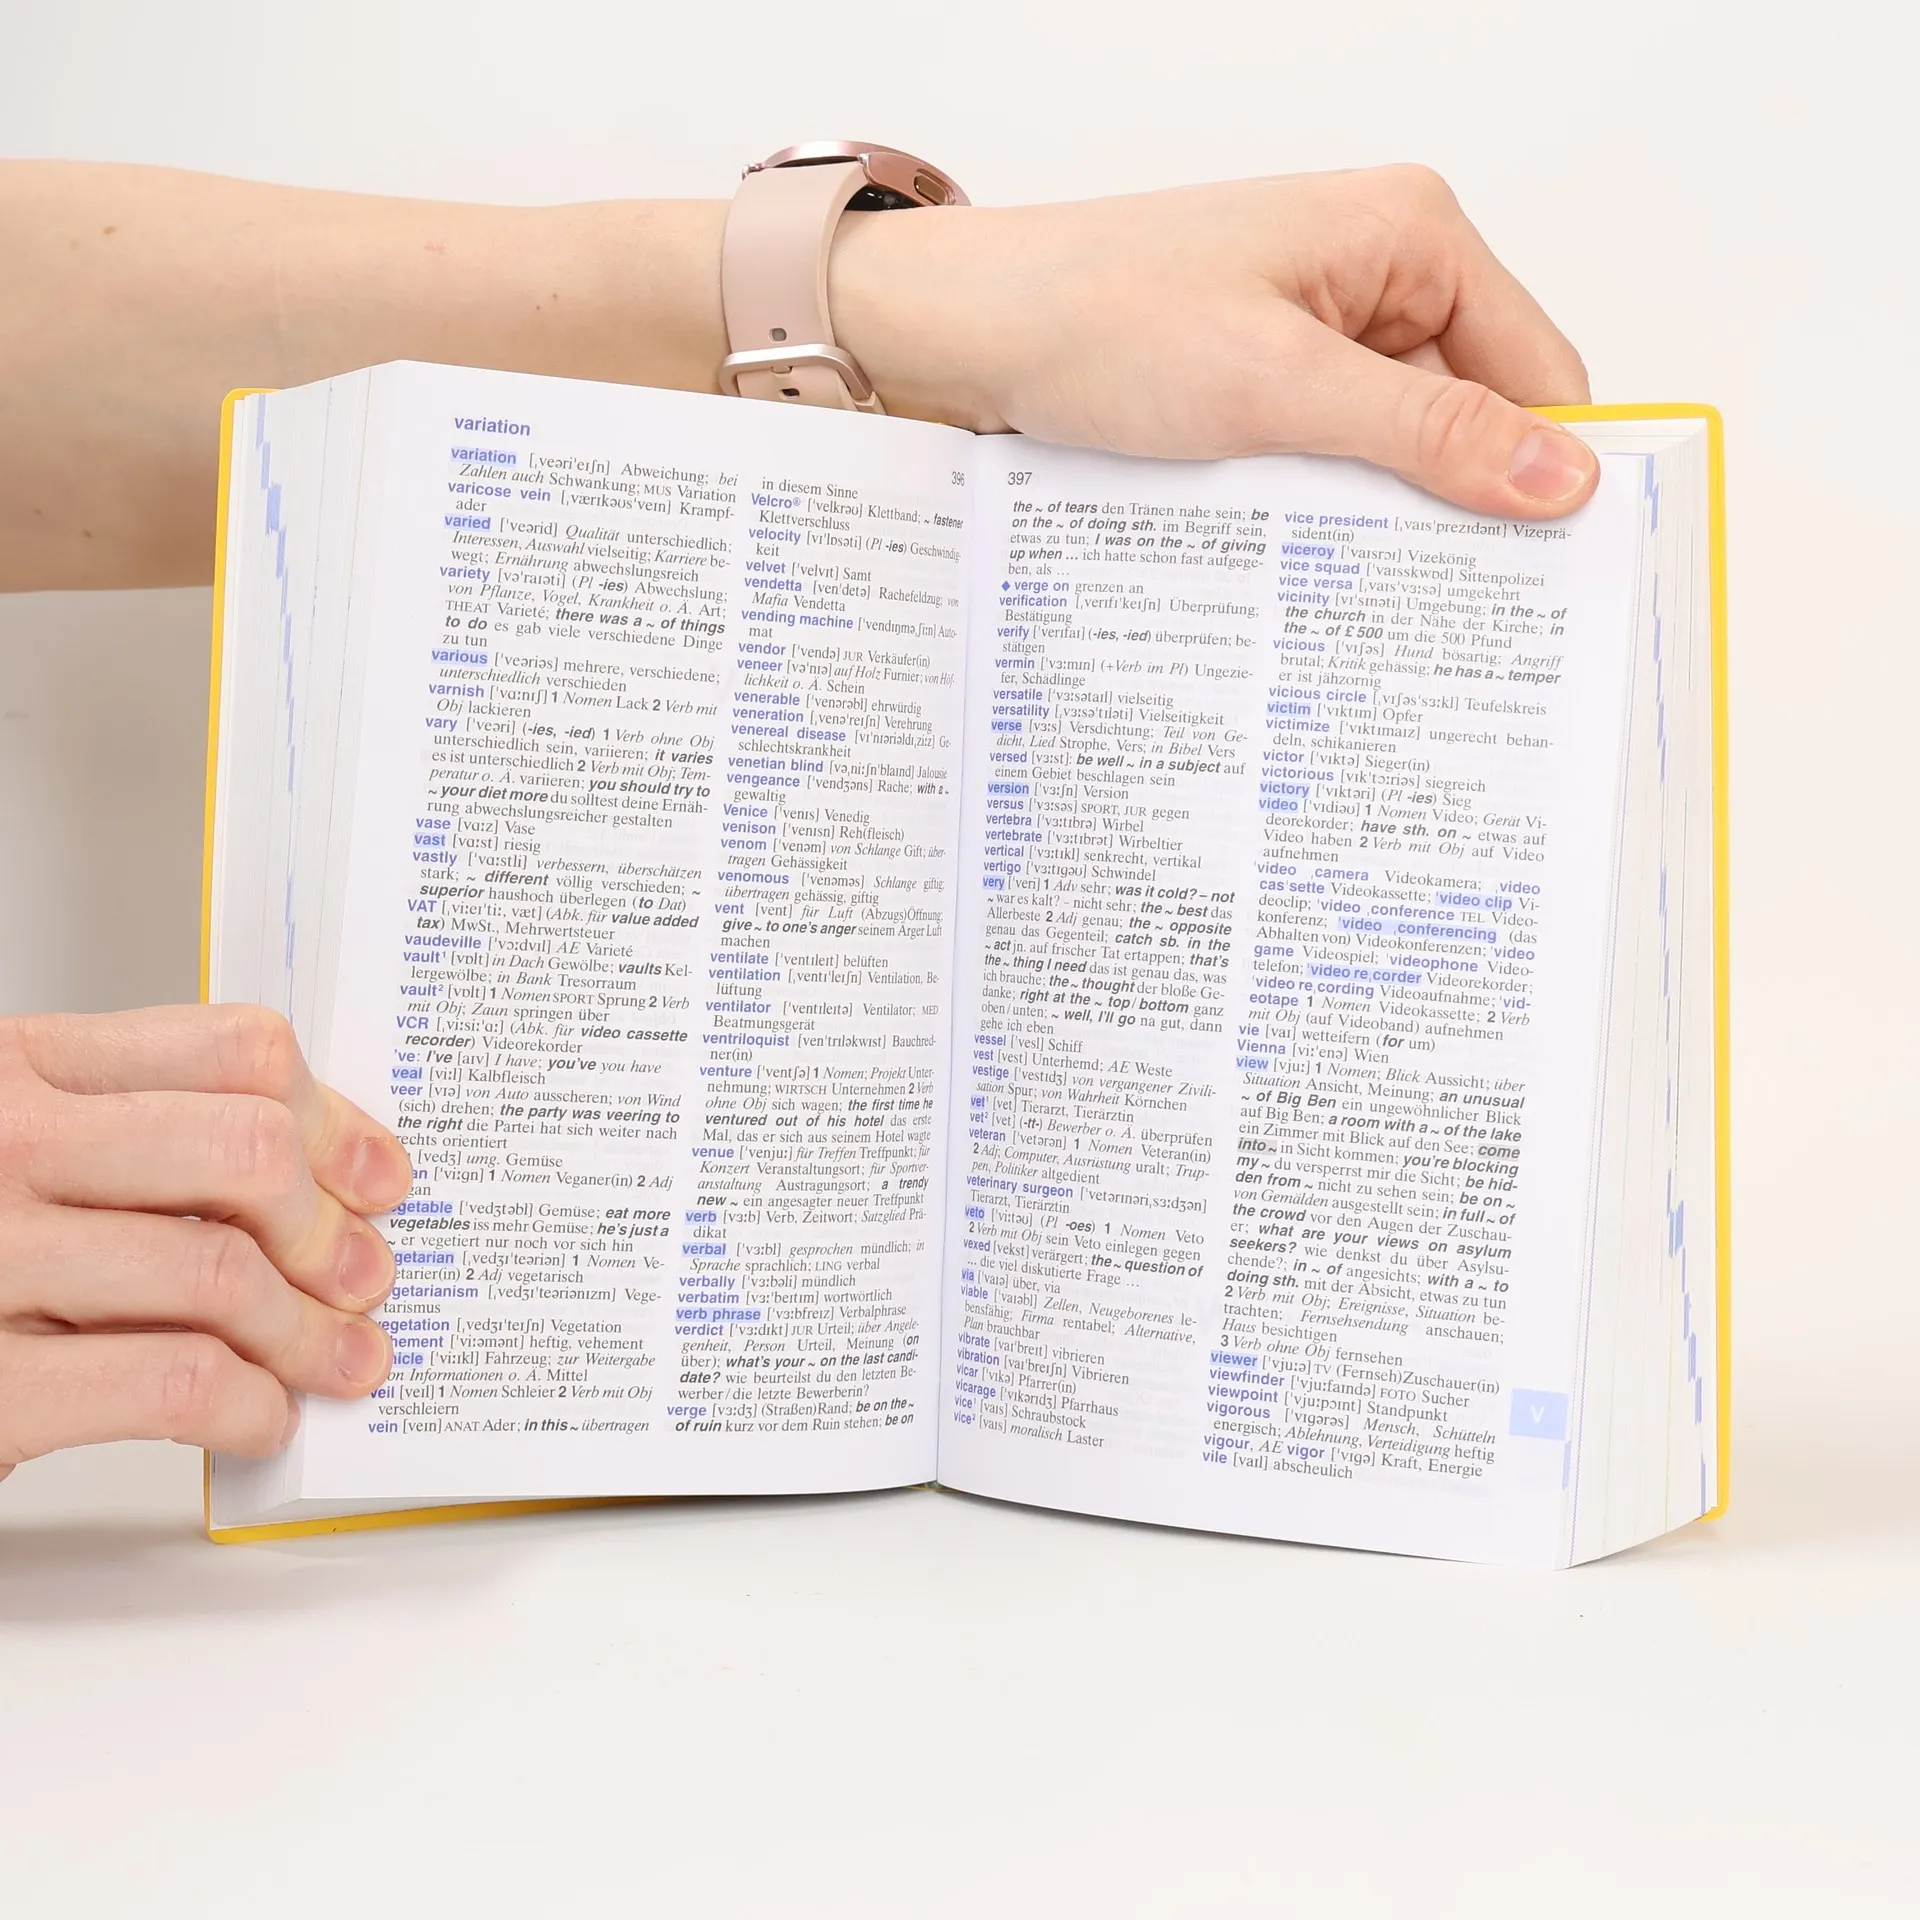 variation
variation [ˌveəriˈeɪʃn] Abweichung; bei
Zahlen auch Schwankung; MUS Variation
varicose vein [ˌværɪkəʊsˈveɪn] Krampf-
ader
varied [ˈveərid] Qualität unterschiedlich;
Interessen, Auswahl vielseitig; Karriere be-
wegt; Ernährung abwechslungsreich
variety [vəˈraɪəti] (Pl -ies) Abwechslung;
von Pflanze, Vogel, Krankheit o. Ä. Art;
THEAT Varieté; there was a ~ of things
to do es gab viele verschiedene Dinge
zu tun
various [ˈveəriəs] mehrere, verschiedene;
unterschiedlich verschieden
varnish [ˈvɑːnɪʃ] 1 Nomen Lack 2 Verb mit
Obj lackieren
vary [ˈveəri] (-ies, -ied) 1 Verb ohne Obj
unterschiedlich sein, variieren; it varies
es ist unterschiedlich 2 Verb mit Obj; Tem-
peratur o. Ä. variieren; you should try to
~ your diet more du solltest deine Ernäh-
rung abwechslungsreicher gestalten
vase [vɑːz] Vase
vast [vɑːst] riesig
vastly [ˈvɑːstli] verbessern, überschätzen
stark; ~ different völlig verschieden; ~
superior haushoch überlegen (to Dat)
VAT [ˌviːeɪˈtiː, væt] (Abk. für value added
tax) MwSt., Mehrwertsteuer
vaudeville [ˈvɔːdvɪl] AE Varieté
vault¹ [vɒlt] in Dach Gewölbe; vaults Kel-
lergewölbe; in Bank Tresorraum
vault² [vɒlt] 1 Nomen SPORT Sprung 2 Verb
mit Obj; Zaun springen über
VCR [ˌviːsiːˈɑː] (Abk. für video cassette
recorder) Videorekorder
've: I've [aɪv] I have; you've you have
veal [viːl] Kalbfleisch
veer [vɪə] von Auto ausscheren; von Wind
(sich) drehen; the party was veering to
the right die Partei hat sich weiter nach
rechts orientiert
[vedʒ] umg. Gemüse
an [ˈviːgn] 1 Nomen Veganer(in) 2 Adj
gan
getable [ˈvedʒtəbl] Gemüse; eat more
vegetables iss mehr Gemüse; he's just a
~ er vegetiert nur noch vor sich hin
getarian [ˌvedʒɪˈteəriən] 1 Nomen Ve-
etarier(in) 2 Adj vegetarisch
getarianism [ˌvedʒɪˈteəriənɪzm] Vege-
tarismus
vegetation [ˌvedʒɪˈteɪʃn] Vegetation
hement [ˈviːəmənt] heftig, vehement
hicle [ˈviːɪkl] Fahrzeug; zur Weitergabe
on Informationen o. Ä. Mittel
veil [veɪl] 1 Nomen Schleier 2 Verb mit Obj
verschleiern
vein [veɪn] ANAT Ader; in this ~ übertragen
396
in diesem Sinne
Velcro® [ˈvelkrəʊ] Klettband; ~ fastener
Klettverschluss
velocity [vɪˈlɒsəti] (Pl -ies) Geschwindig-
keit
velvet [ˈvelvɪt] Samt
vendetta [venˈdetə] Rachefeldzug; von
Mafia Vendetta
vending machine [ˈvendɪŋməˌʃiːn] Auto-
mat
vendor [ˈvendə] JUR Verkäufer(in)
veneer [vəˈnɪə] auf Holz Furnier; von Höf-
lichkeit o. Ä. Schein
venerable [ˈvenərəbl] ehrwürdig
veneration [ˌvenəˈreɪʃn] Verehrung
venereal disease [vɪˈnɪəriəldɪˌziːz] Ge-
schlechtskrankheit
venetian blind [vəˌniːʃnˈblaɪnd] Jalousie
vengeance [ˈvendʒəns] Rache; with a ~
gewaltig
Venice [ˈvenɪs] Venedig
venison [ˈvenɪsn] Reh(fleisch)
venom [ˈvenəm] von Schlange Gift; über-
tragen Gehässigkeit
venomous [ˈvenəməs] Schlange giftig;
übertragen gehässig, giftig
vent [vent] für Luft (Abzugs)Öffnung;
give ~ to one's anger seinem Ärger Luft
machen
ventilate [ˈventɪleɪt] belüften
ventilation [ˌventɪˈleɪʃn] Ventilation, Be-
lüftung
ventilator [ˈventɪleɪtə] Ventilator; MED
Beatmungsgerät
ventriloquist [venˈtrɪləkwɪst] Bauchred-
ner(in)
venture [ˈventʃə] 1 Nomen; Projekt Unter-
nehmung; WIRTSCH Unternehmen 2 Verb
ohne Obj sich wagen; the first time he
ventured out of his hotel das erste
Mal, das er sich aus seinem Hotel wagte
venue [ˈvenjuː] für Treffen Treffpunkt; für
Konzert Veranstaltungsort; für Sportver-
anstaltung Austragungsort; a trendy
new ~ ein angesagter neuer Treffpunkt
verb [vɜːb] Verb, Zeitwort; Satzglied Prä-
dikat
verbal [ˈvɜːbl] gesprochen mündlich; in
Sprache sprachlich; LING verbal
verbally [ˈvɜːbəli] mündlich
verbatim [vɜːˈbeɪtɪm] wortwörtlich
verb phrase [ˈvɜːbfreɪz] Verbalphrase
verdict [ˈvɜːdɪkt] JUR Urteil; über Angele-
genheit, Person Urteil, Meinung (on
über); what's your ~ on the last candi-
date? wie beurteilst du den letzten Be-
werber / die letzte Bewerberin?
verge [vɜːdʒ] (Straßen)Rand; be on the ~
of ruin kurz vor dem Ruin stehen; be on
397
the ~ of tears den Tränen nahe sein; be
on the ~ of doing sth. im Begriff sein,
etwas zu tun; I was on the ~ of giving
up when ... ich hatte schon fast aufgege-
ben, als ...
◆ verge on grenzen an
verification [ˌverɪfɪˈkeɪʃn] Überprüfung;
Bestätigung
verify [ˈverɪfaɪ] (-ies, -ied) überprüfen; be-
stätigen
vermin [ˈvɜːmɪn] (+Verb im Pl) Ungezie-
fer, Schädlinge
versatile [ˈvɜːsətaɪl] vielseitig
versatility [ˌvɜːsəˈtɪləti] Vielseitigkeit
verse [vɜːs] Versdichtung; Teil von Ge-
dicht, Lied Strophe, Vers; in Bibel Vers
versed [vɜːst]: be well ~ in a subject auf
einem Gebiet beschlagen sein
version [ˈvɜːʃn] Version
versus [ˈvɜːsəs] SPORT, JUR gegen
vertebra [ˈvɜːtɪbrə] Wirbel
vertebrate [ˈvɜːtɪbrət] Wirbeltier
vertical [ˈvɜːtɪkl] senkrecht, vertikal
vertigo [ˈvɜːtɪgəʊ] Schwindel
very [ˈveri] 1 Adv sehr; was it cold? – not
~ war es kalt? – nicht sehr; the ~ best das
Allerbeste 2 Adj genau; the ~ opposite
genau das Gegenteil; catch sb. in the
~ act jn. auf frischer Tat ertappen; that's
the ~ thing I need das ist genau das, was
ich brauche; the ~ thought der bloße Ge-
danke; right at the ~ top / bottom ganz
oben / unten; ~ well, I'll go na gut, dann
gehe ich eben
vessel [ˈvesl] Schiff
vest [vest] Unterhemd; AE Weste
vestige [ˈvestɪdʒ] von vergangener Zivili-
sation Spur; von Wahrheit Körnchen
vet¹ [vet] Tierarzt, Tierärztin
vet² [vet] (-tt-) Bewerber o. Ä. überprüfen
veteran [ˈvetərən] 1 Nomen Veteran(in)
2 Adj; Computer, Ausrüstung uralt; Trup-
pen, Politiker altgedient
veterinary surgeon [ˈvetərɪnəriˌsɜːdʒən]
Tierarzt, Tierärztin
veto [ˈviːtəʊ] (Pl -oes) 1 Nomen Veto
2 Verb mit Obj sein Veto einlegen gegen
vexed [vekst] verärgert; the ~ question of
... die viel diskutierte Frage ...
via [ˈvaɪə] über, via
viable [ˈvaɪəbl] Zellen, Neugeborenes le-
bensfähig; Firma rentabel; Alternative,
Plan brauchbar
vibrate [vaɪˈbreɪt] vibrieren
vibration [vaɪˈbreɪʃn] Vibrieren
vicar [ˈvɪkə] Pfarrer(in)
vicarage [ˈvɪkərɪdʒ] Pfarrhaus
vice¹ [vaɪs] Schraubstock
vice² [vaɪs] moralisch Laster
vice president [ˌvaɪsˈprezɪdənt] Vizeprä-
sident(in)
viceroy [ˈvaɪsrɔɪ] Vizekönig
vice squad [ˈvaɪsskwɒd] Sittenpolizei
vice versa [ˌvaɪsˈvɜːsə] umgekehrt
vicinity [vɪˈsɪnəti] Umgebung; in the ~ of
the church in der Nähe der Kirche; in
the ~ of £ 500 um die 500 Pfund
vicious [ˈvɪʃəs] Hund bösartig; Angriff
brutal; Kritik gehässig; he has a ~ temper
er ist jähzornig
vicious circle [ˌvɪʃəsˈsɜːkl] Teufelskreis
victim [ˈvɪktɪm] Opfer
victimize [ˈvɪktɪmaɪz] ungerecht behan-
deln, schikanieren
victor [ˈvɪktə] Sieger(in)
victorious [vɪkˈtɔːriəs] siegreich
victory [ˈvɪktəri] (Pl -ies) Sieg
video [ˈvɪdiəʊ] 1 Nomen Video; Gerät Vi-
deorekorder; have sth. on ~ etwas auf
Video haben 2 Verb mit Obj auf Video
aufnehmen
ˈvideo ˌcamera Videokamera; ˌvideo
casˈsette Videokassette; ˈvideo clip Vi-
deoclip; ˈvideo ˌconference TEL Video-
konferenz; ˈvideo ˌconferencing (das
Abhalten von) Videokonferenzen; ˈvideo
game Videospiel; ˈvideophone Video-
telefon; ˈvideo reˌcorder Videorekorder;
ˈvideo reˌcording Videoaufnahme; ˈvid-
eotape 1 Nomen Videokassette; 2 Verb
mit Obj (auf Videoband) aufnehmen
vie [vaɪ] wetteifern (for um)
Vienna [viːˈenə] Wien
view [vjuː] 1 Nomen; Blick Aussicht; über
Situation Ansicht, Meinung; an unusual
~ of Big Ben ein ungewöhnlicher Blick
auf Big Ben; a room with a ~ of the lake
ein Zimmer mit Blick auf den See; come
into ~ in Sicht kommen; you're blocking
my ~ du versperrst mir die Sicht; be hid-
den from ~ nicht zu sehen sein; be on ~
von Gemälden ausgestellt sein; in full ~ of
the crowd vor den Augen der Zuschau-
er; what are your views on asylum
seekers? wie denkst du über Asylsu-
chende?; in ~ of angesichts; with a ~ to
doing sth. mit der Absicht, etwas zu tun
2 Verb mit Obj; Ereignisse, Situation be-
trachten; Fernsehsendung anschauen;
Haus besichtigen
3 Verb ohne Obj fernsehen
viewer [ˈvjuːə] TV (Fernseh)Zuschauer(in)
viewfinder [ˈvjuːfaɪndə] FOTO Sucher
viewpoint [ˈvjuːpɔɪnt] Standpunkt
vigorous [ˈvɪgərəs] Mensch, Schütteln
energisch; Ablehnung, Verteidigung heftig
vigour, AE vigor [ˈvɪgə] Kraft, Energie
vile [vaɪl] abscheulich
V